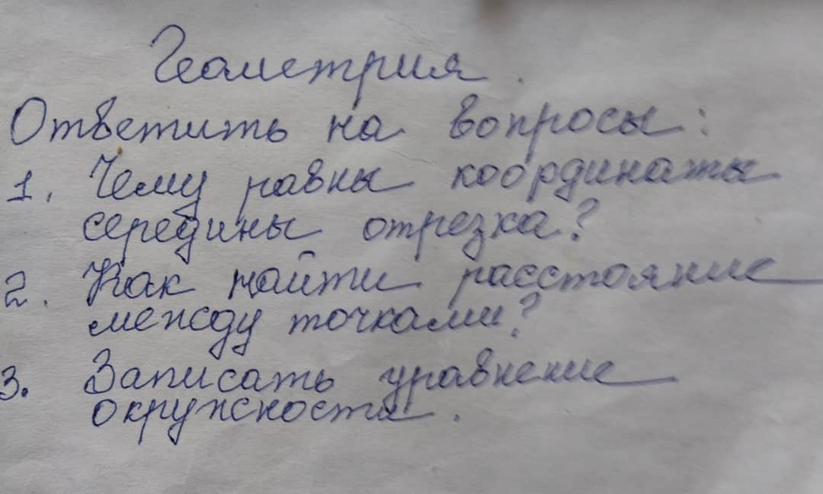 Геометрия.
Ответить на вопросы:
1. Чему равны координаты
середины отрезка?
2. Как найти расстояние
между точками?
3. Записать уравнение
окружности.